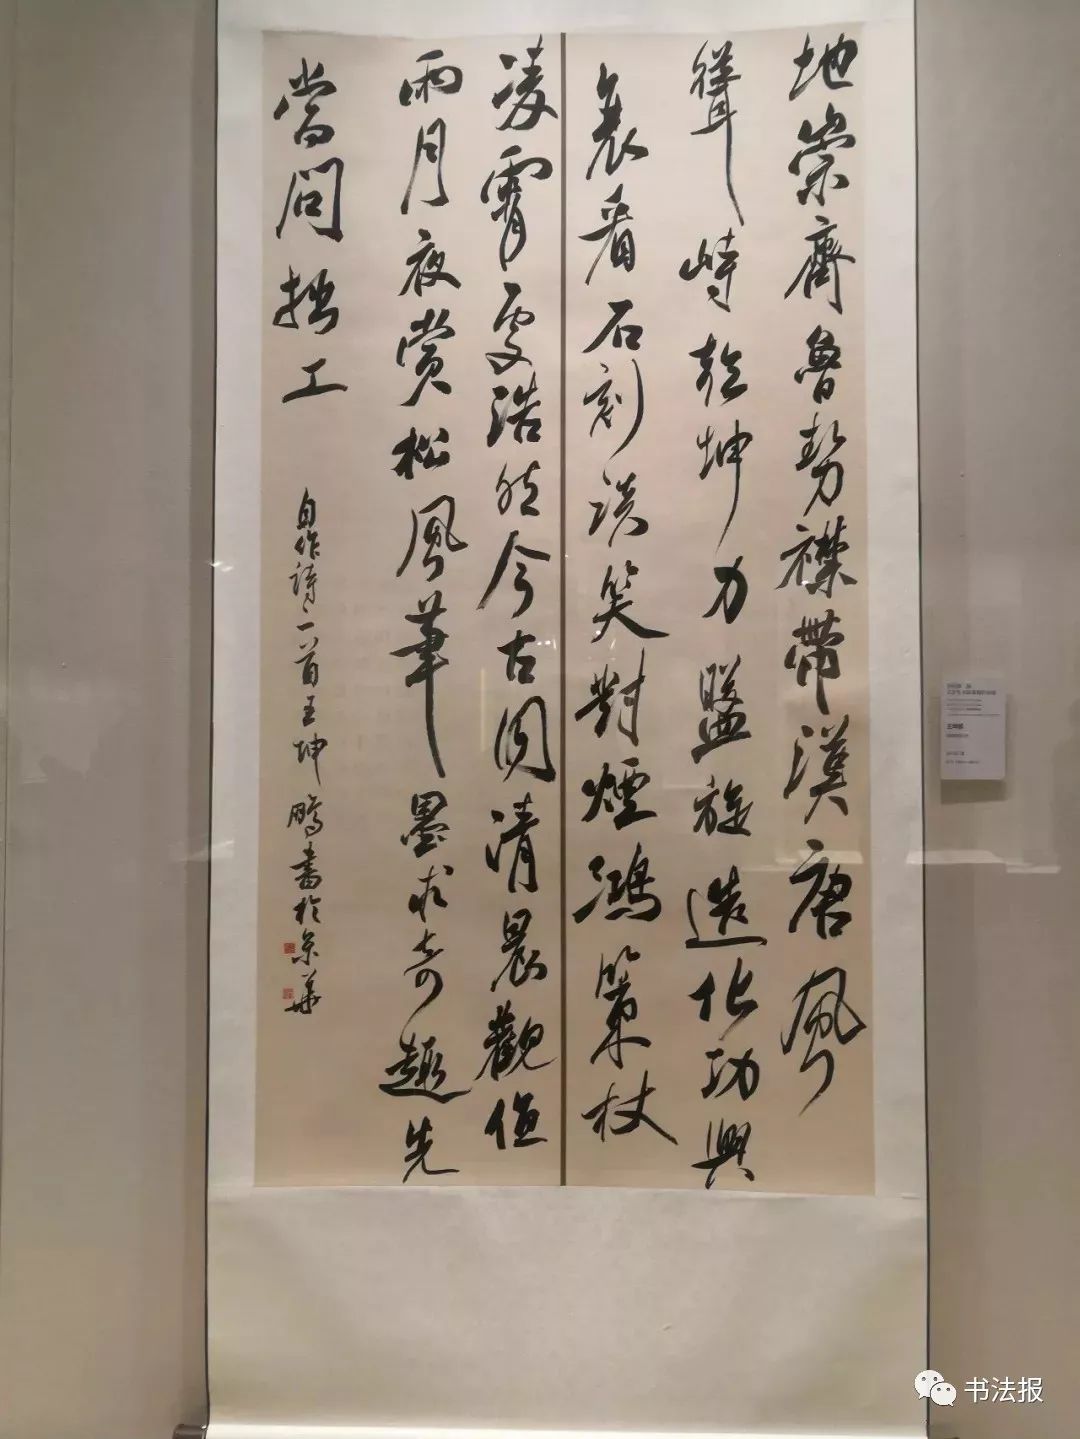 地崇齊魯勢襟帶漢唐風
聳峙乾坤力盤旋造化功興
衰看石刻談笑對煙鴻策杖
凌霄處浩然今古同清晨觀
雨月夜賞松風筆墨求奇趣先
當問拙工
自作詩一首王坤鵬書於京華
书法报